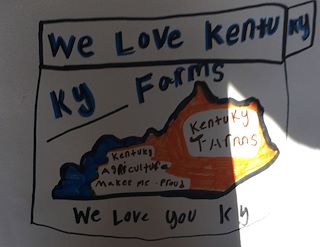 We Love Kentu ky
Ky Farms
Kentuky
Farms
Kentuky
Agriculture
Makes me Proud
We Love you Ky